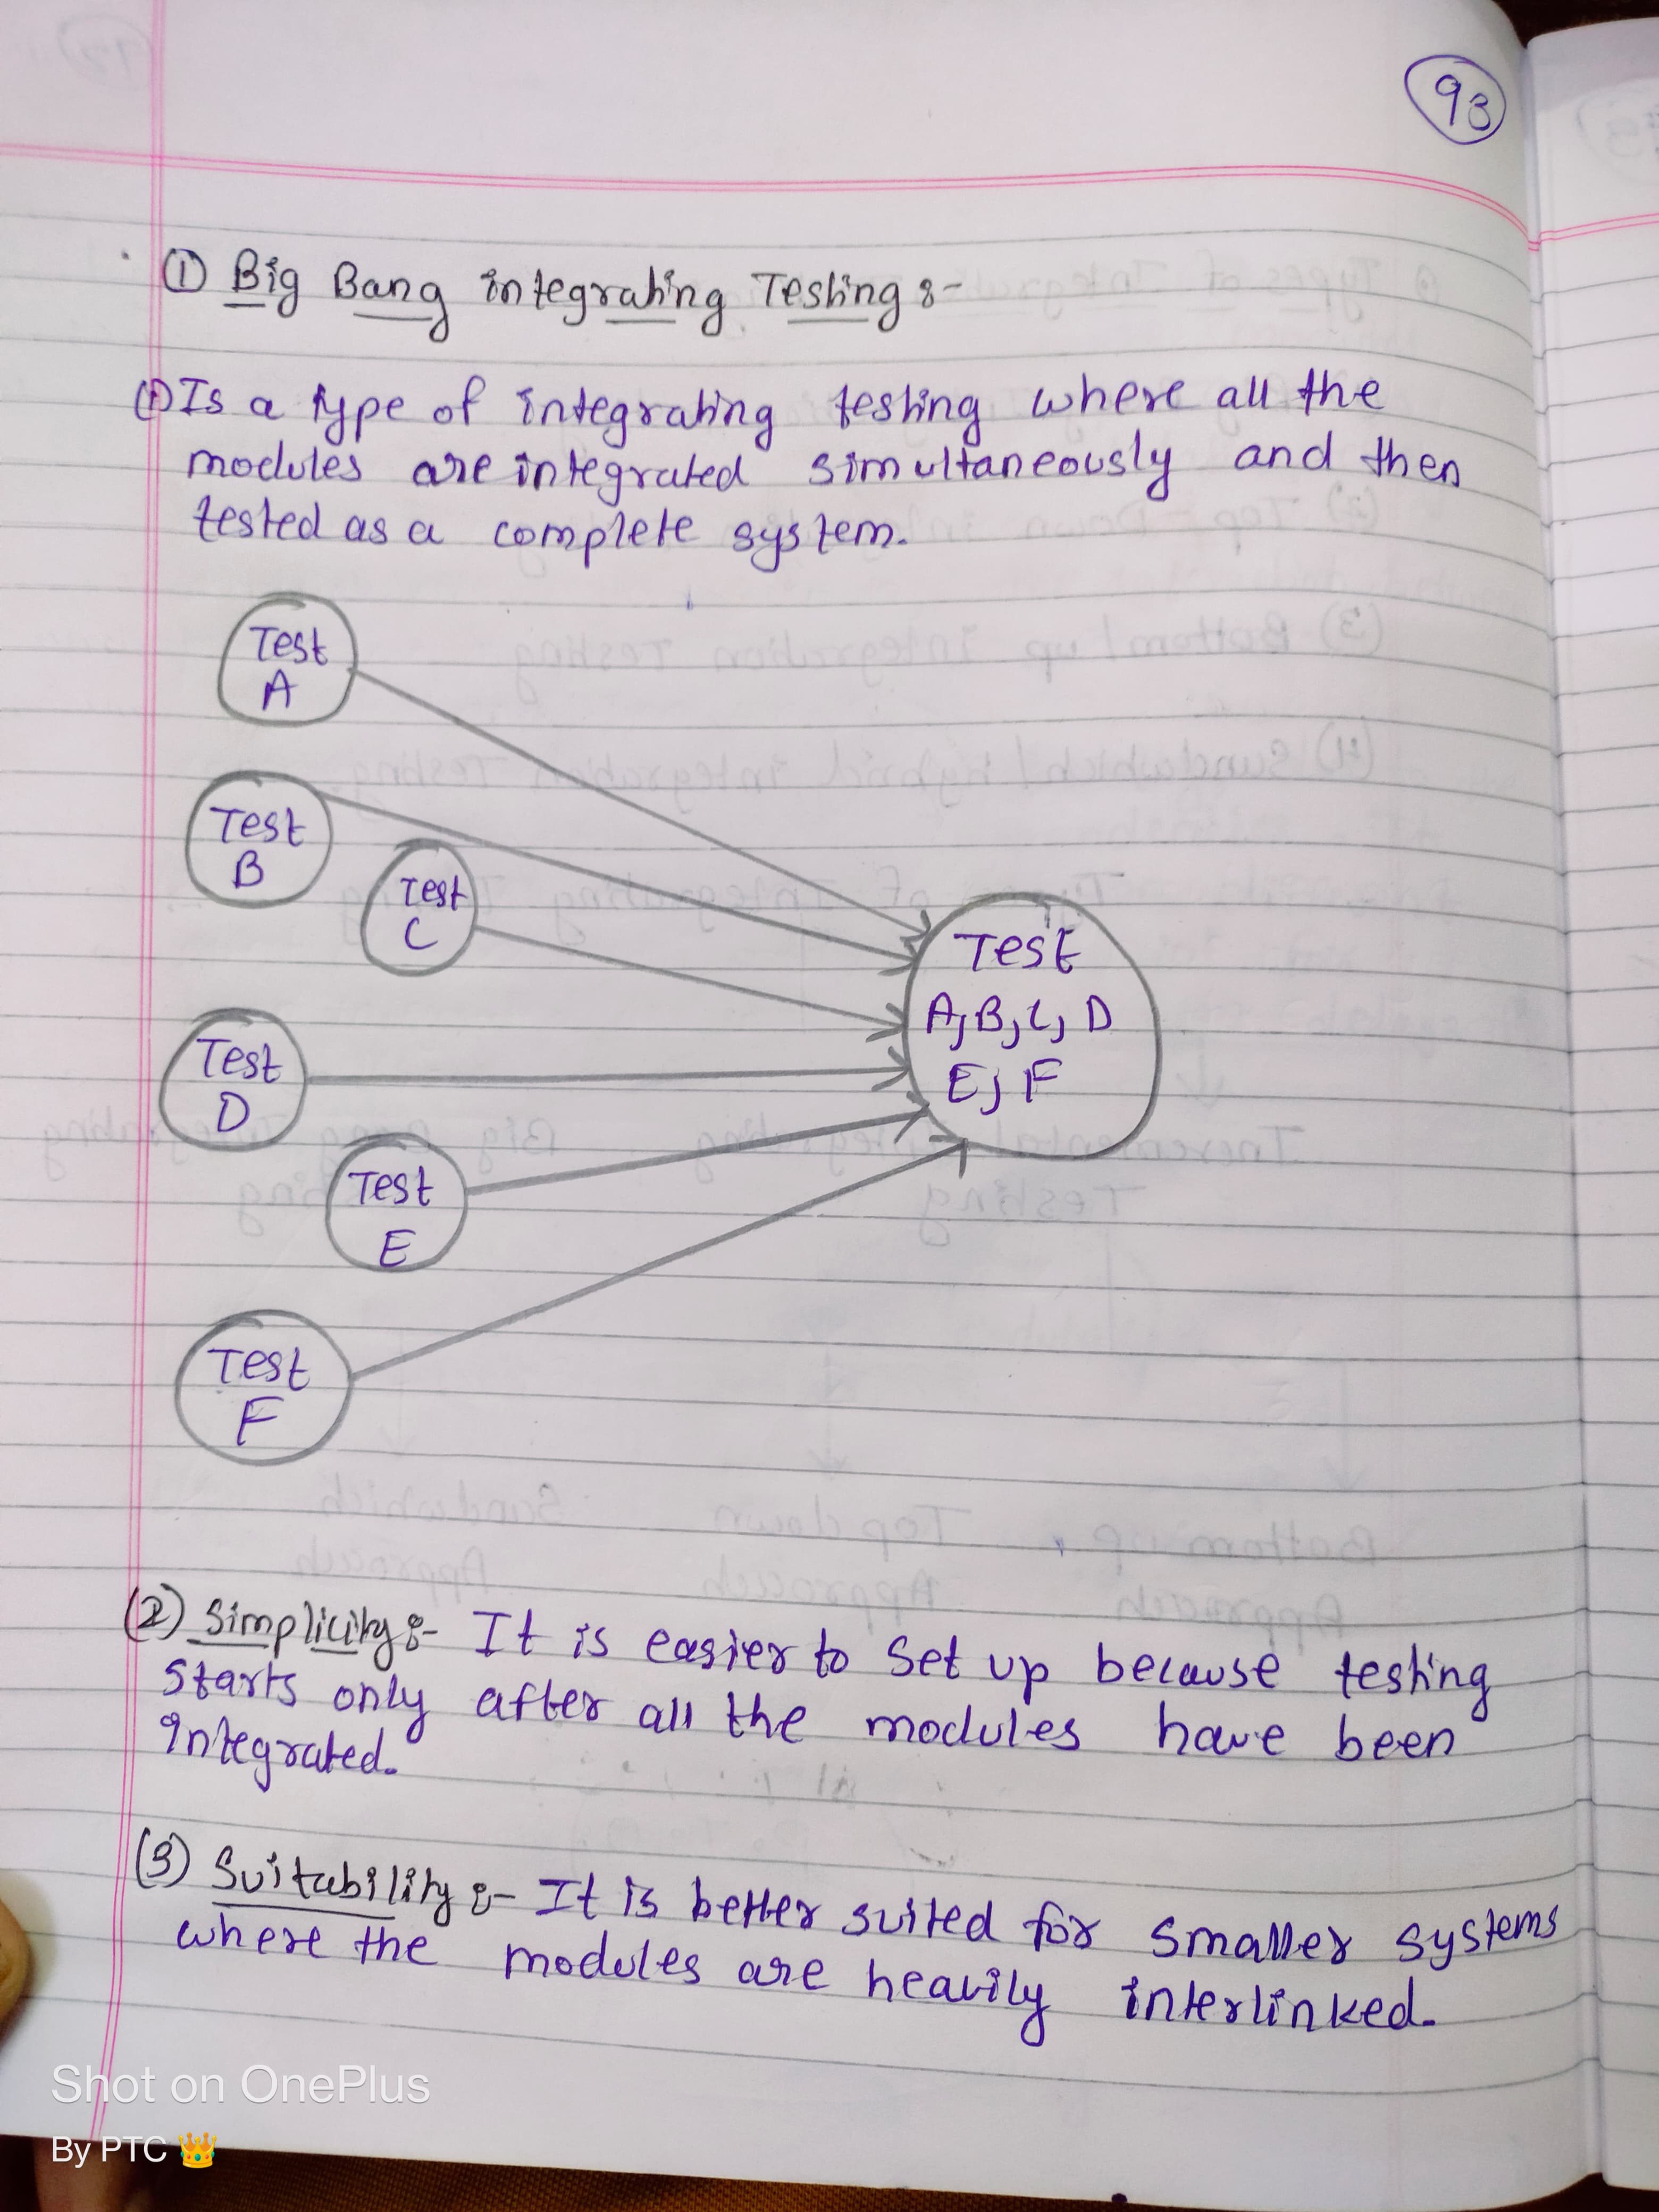 93
① Big Bang integrating Testing :-
(1) Is a type of integrating testing where all the
modules are integrated simultaneously and then
tested as a complete system.
Test
A
Test
B
Test
C
Test
A, B, C, D
E, F
Test
D
Test
E
Test
F
(2) Simplicity :- It is easier to set up because testing
starts only after all the modules have been
integrated.
(3) Suitability :- It is better suited for smaller systems
where the modules are heavily interlinked.
Shot on OnePlus
By PTC 👑